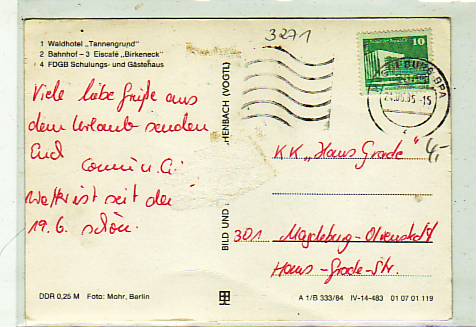 1 Waldhotel „Tannengrund"
2 Bahnhof – 3 Eiscafé „Birkeneck"
4 FDGB Schulungs- und Gästehaus
3271
10
BPA
-15
Viele liebe Grüße aus
dem Urlaub senden
Euch
Conni u.
Wetter ist seit dem
19.6. schön.
BILD UND
ENBACH (VOGTL)
KK „Hans Grade"
301 Magdeburg-Olvenstedt
Hans-Grade-Str.
DDR 0,25 M Foto: Mohr, Berlin
A 1/B 333/84 IV-14-483 01 07 01 119